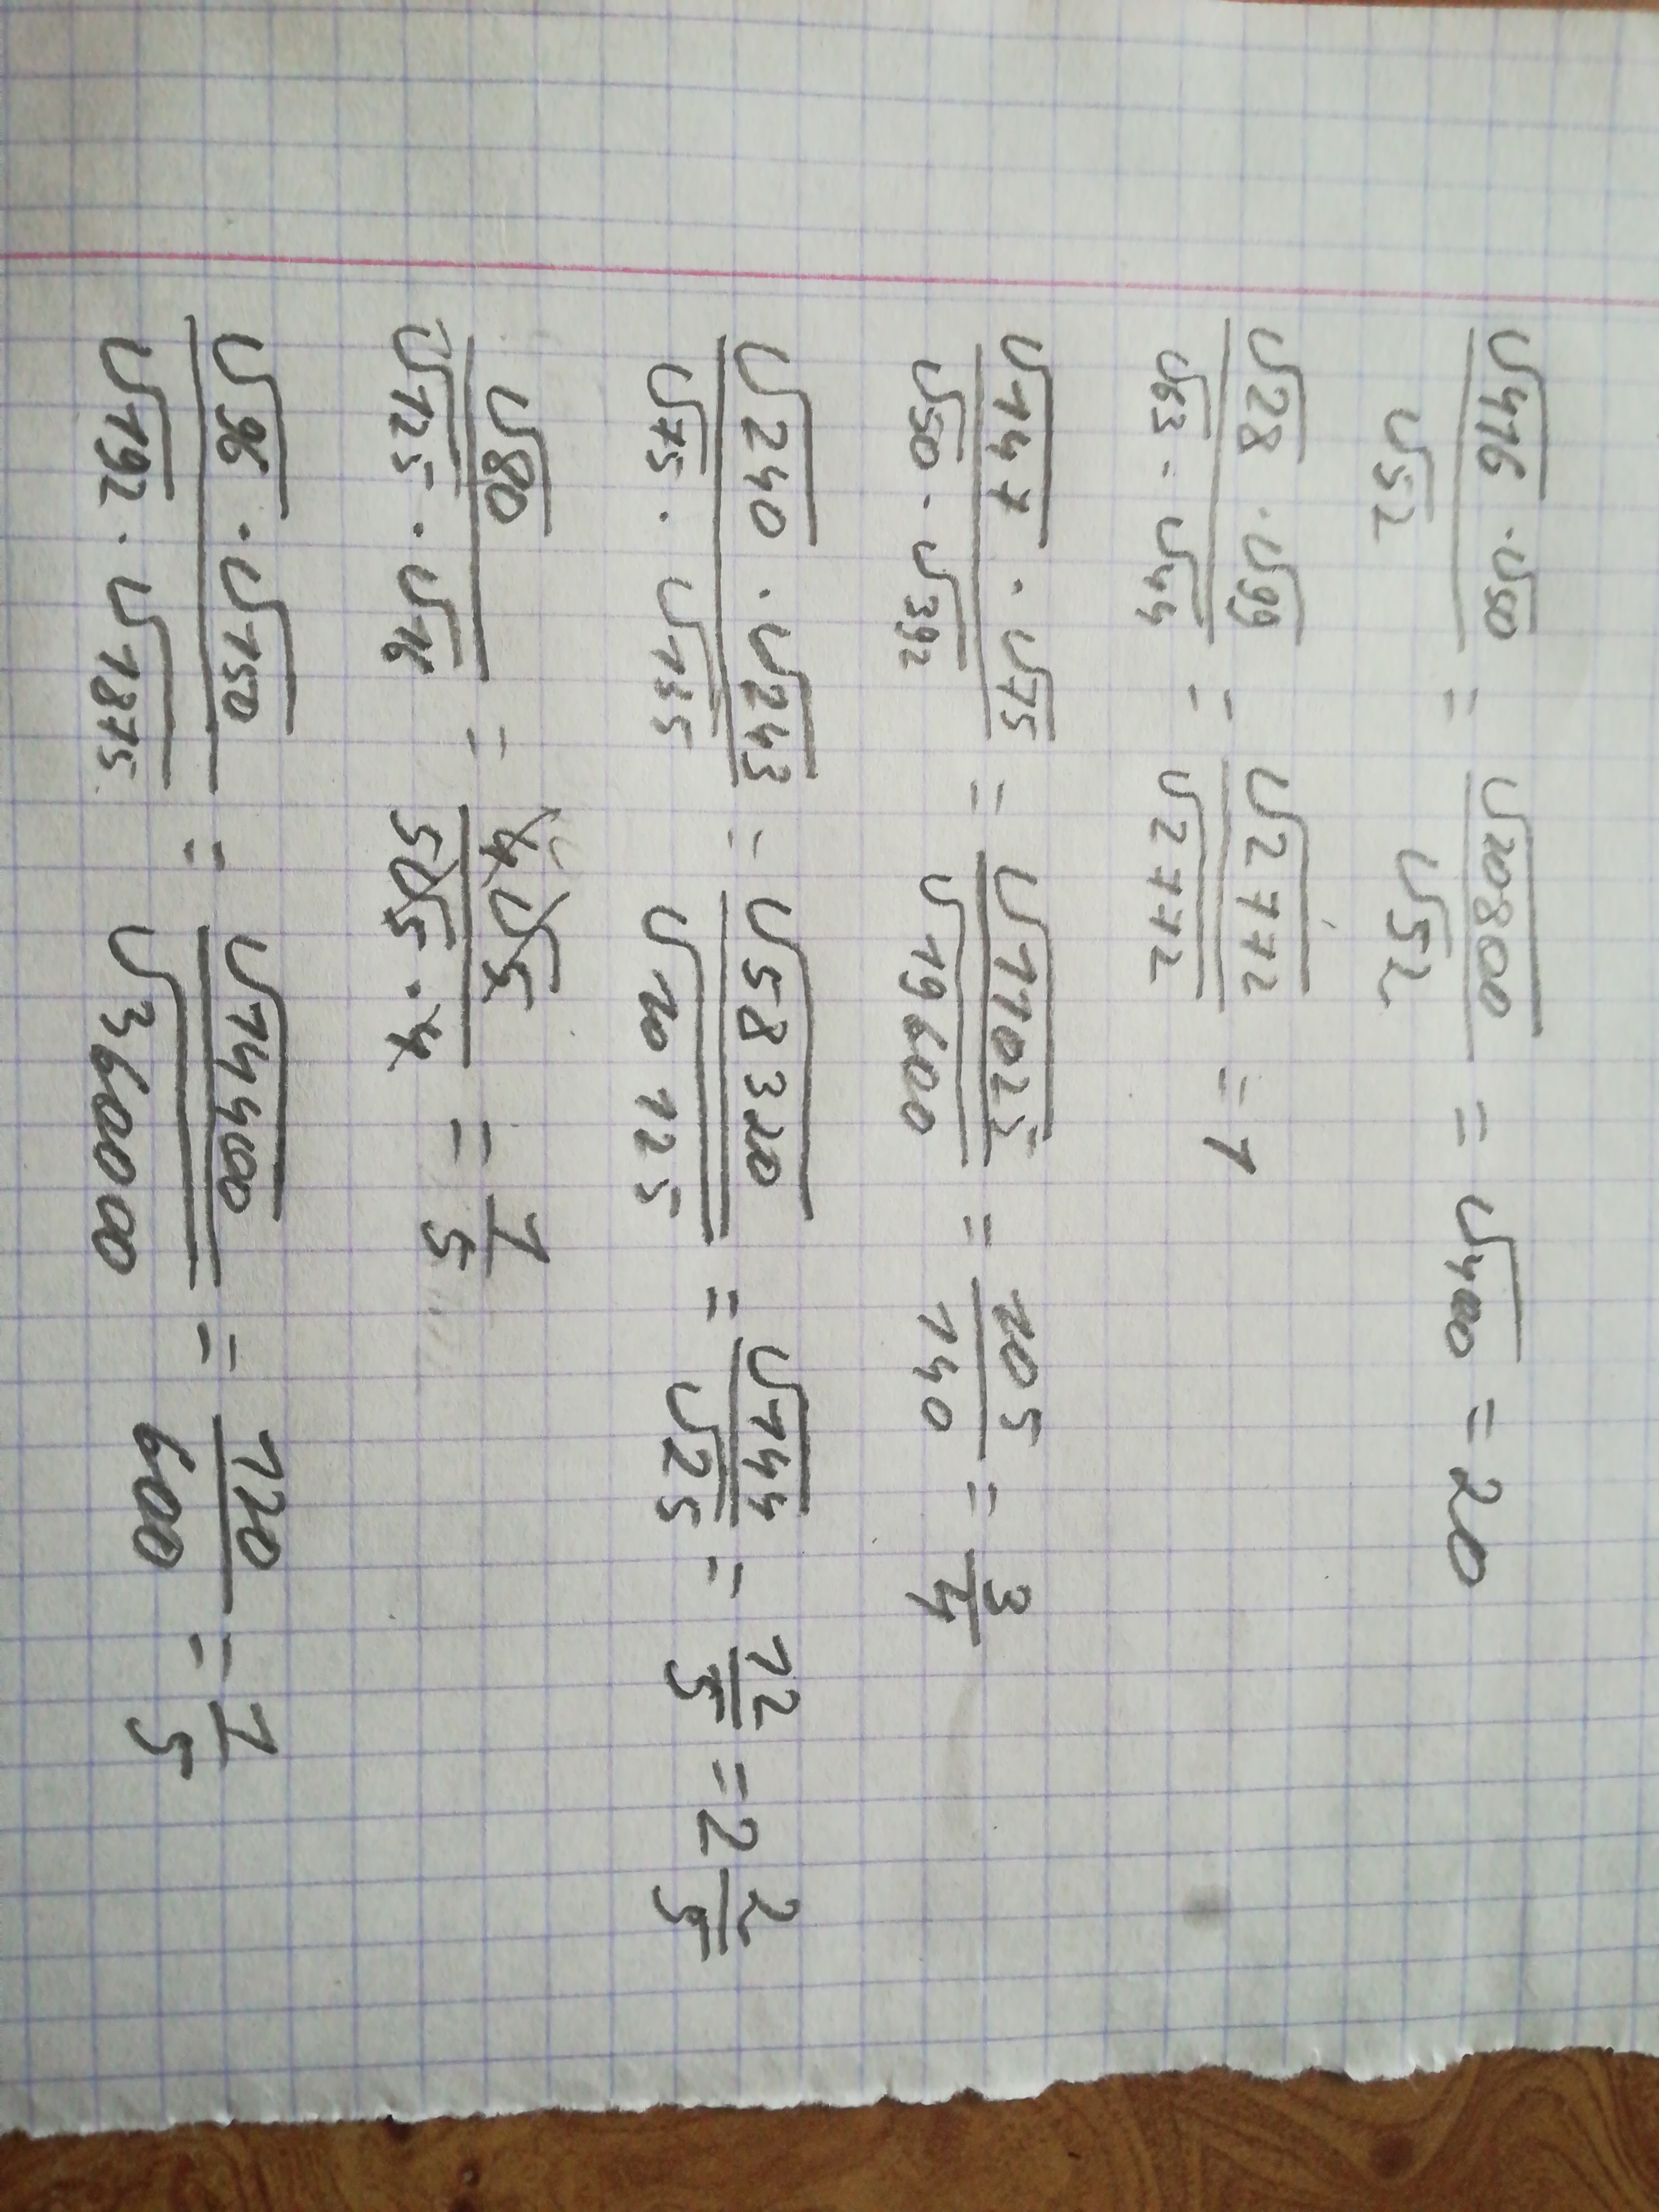 √416 · √50 / √52 = √20800 / √52 = √400 = 20
√28 · √99 / √63 · √44 = √2772 / √2772 = 1
√147 · √75 / √50 · √392 = √11025 / √19600 = 105 / 140 = 3/4
√240 · √243 / √75 · √135 = √58320 / √10125 = √144 / √25 = 12/5 = 2 2/5
√80 / √125 · √16 = 4√5 / 5√5 · 4 = 1/5
√96 · √150 / √192 · √1875 = √14400 / √360000 = 120 / 600 = 1/5